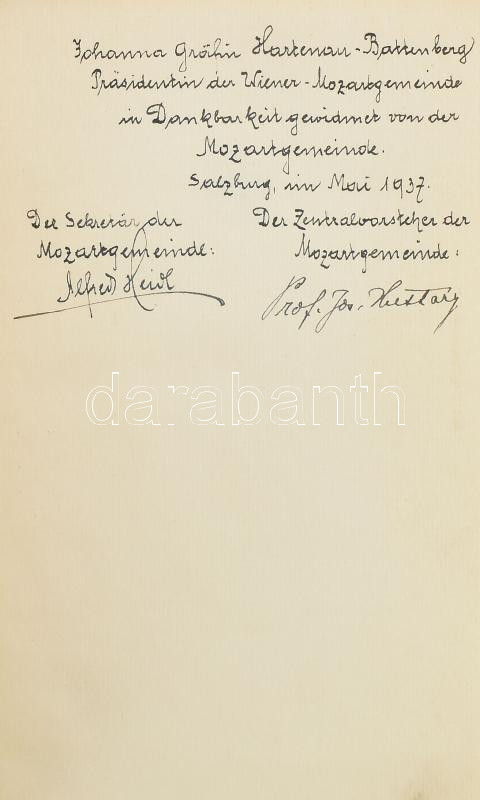 Johanna Gräfin Hartenau-Battenberg
Präsidentin der Wiener-Mozartgemeinde
in Dankbarkeit gewidmet von der
Mozartgemeinde.
Salzburg, im Mai 1937.
Der Sekretär der
Mozartgemeinde:
Alfred Heidl
Der Zentralvorsteher der
Mozartgemeinde:
Prof. Jos.
darabanth